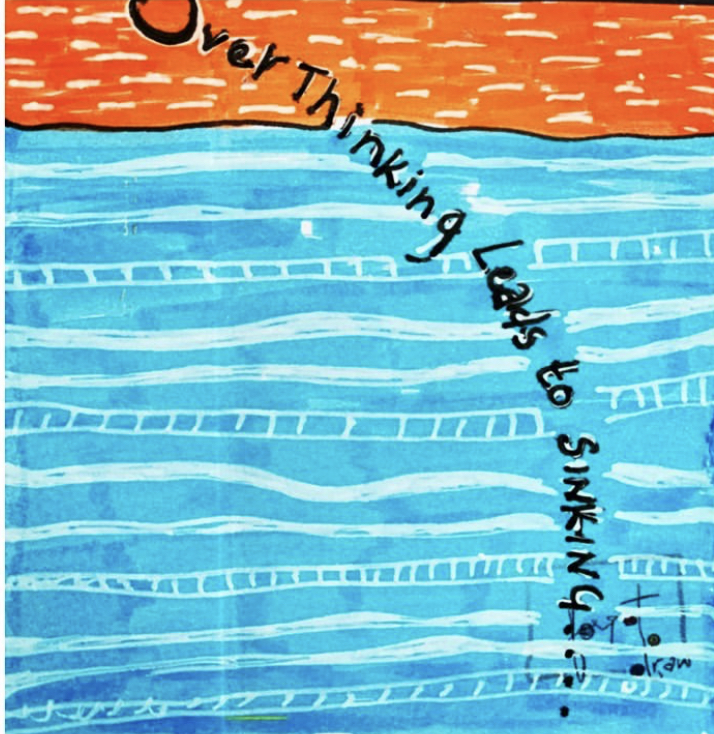 OverThinking Leads to SINKING.....
to
draw